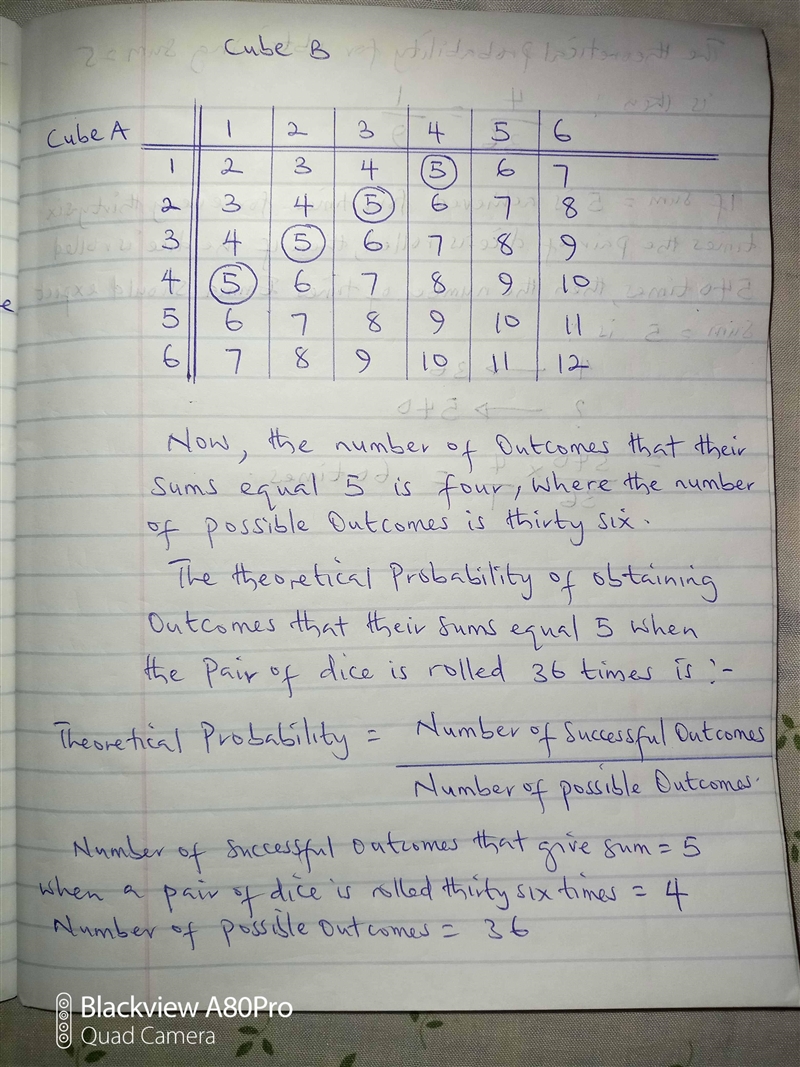 Cube B
Cube A 1 2 3 4 5 6
1 2 3 4 5 6 7
2 3 4 5 6 7 8
3 4 5 6 7 8 9
4 5 6 7 8 9 10
5 6 7 8 9 10 11
6 7 8 9 10 11 12
Now, the number of Outcomes that their
sums equal 5 is four, where the number
of possible Outcomes is thirty six.
The theoretical Probability of obtaining
Outcomes that their sums equal 5 when
the Pair of dice is rolled 36 times is :-
Theoretical Probability = Number of Successful Outcomes
Number of possible Outcomes.
Number of Successful Outcomes that give sum = 5
when a pair of dice is rolled thirty six times = 4
Number of possible Outcomes = 36
Blackview A80Pro
Quad Camera